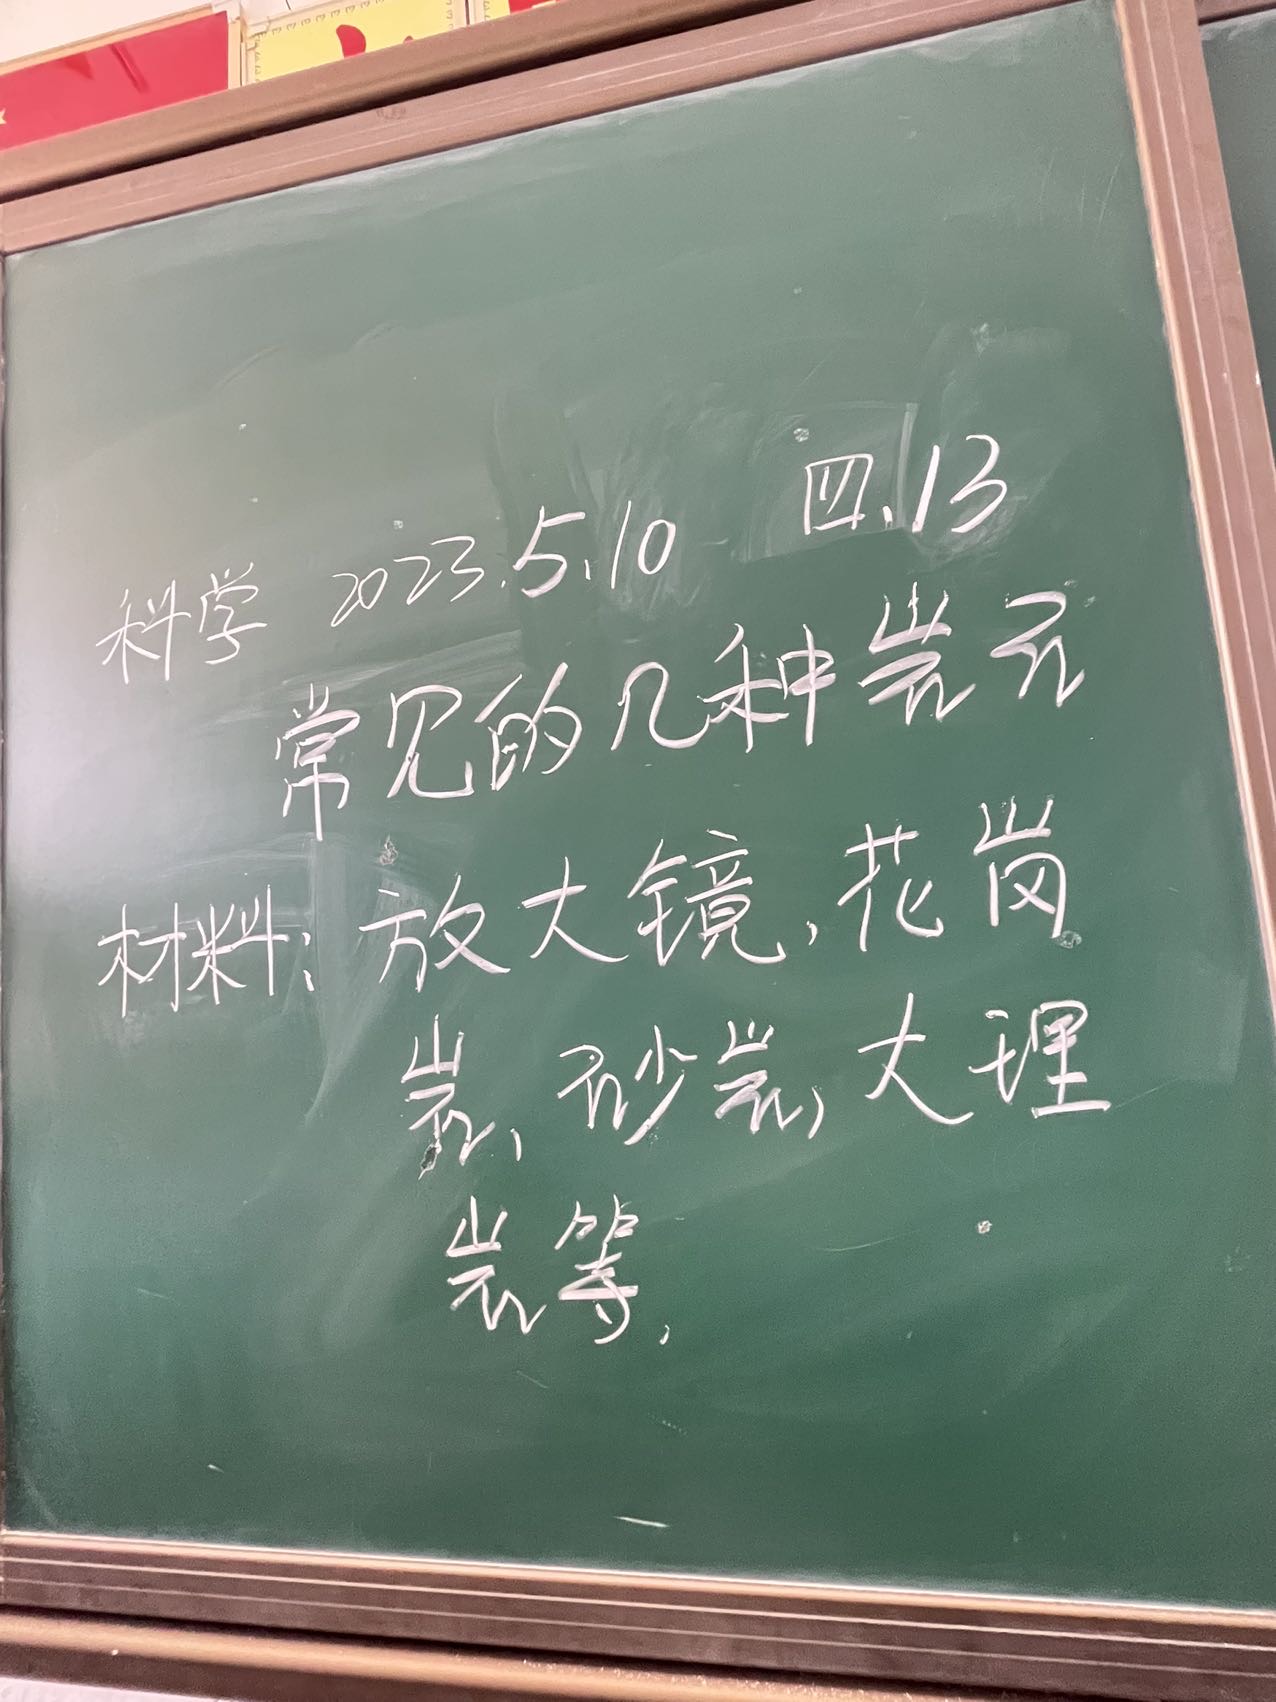 科学 2023.5.10 四.13
常见的几种岩石
材料：放大镜，花岗
岩、砂岩，大理
岩等，